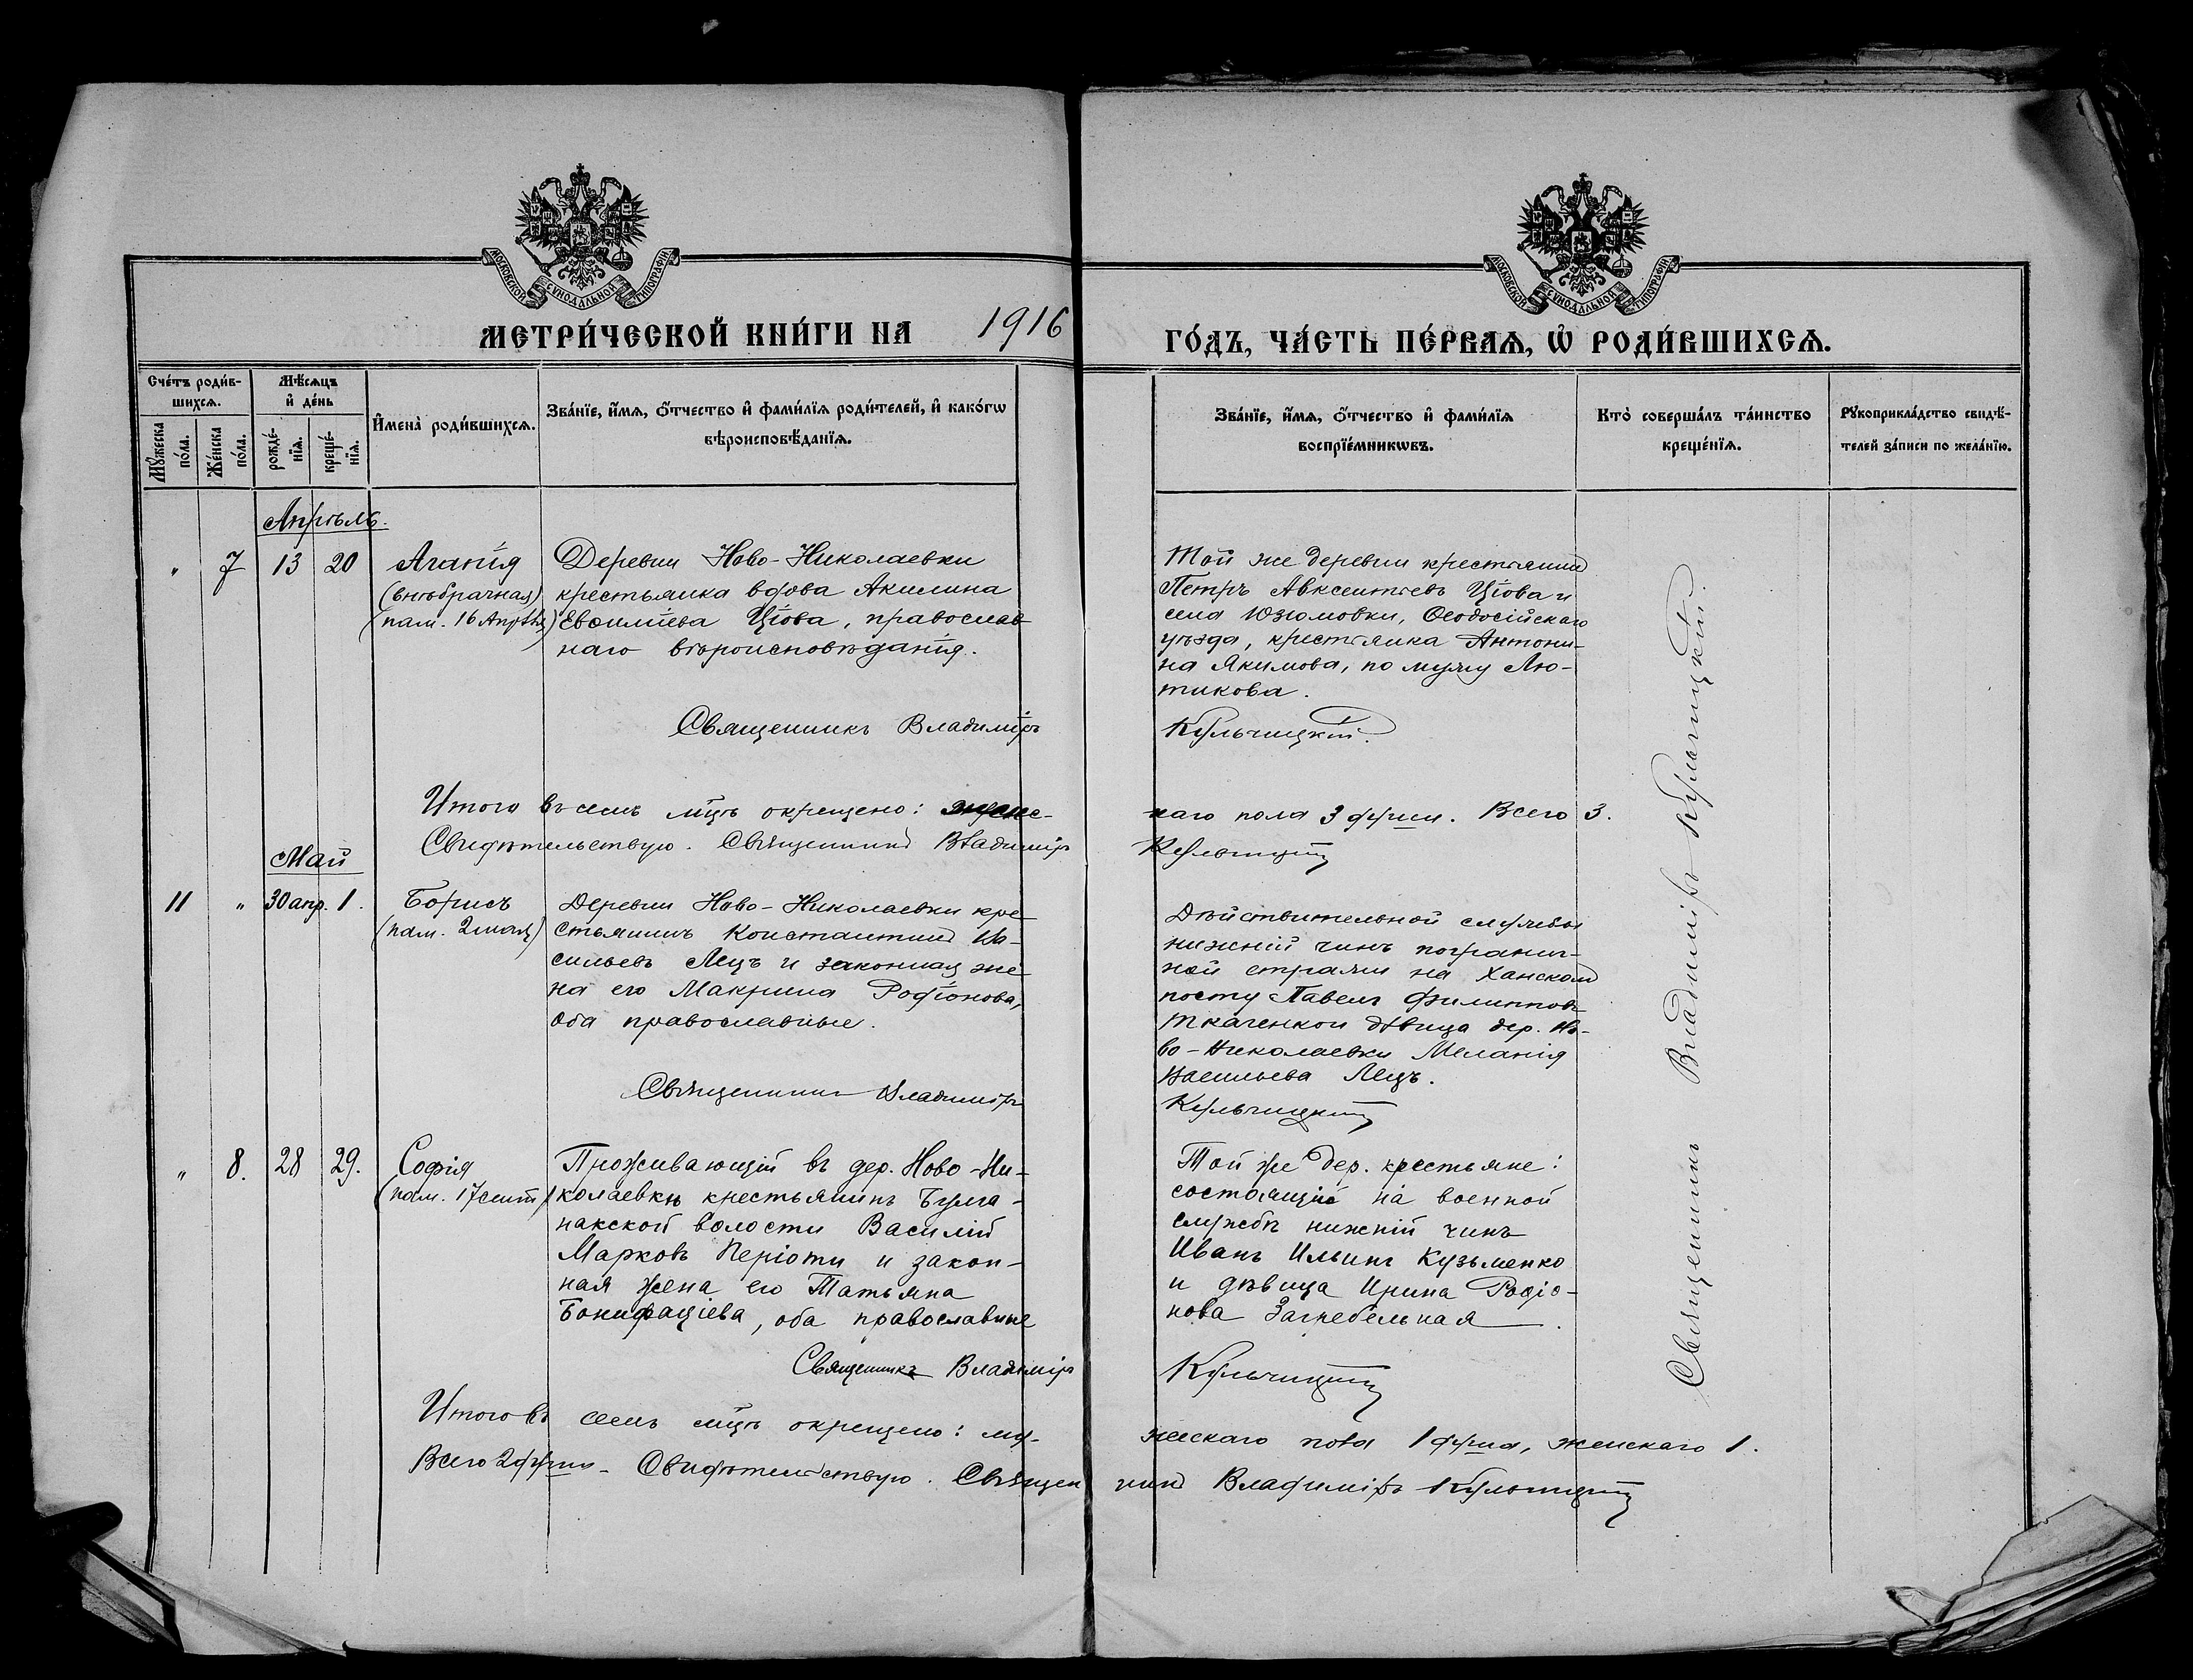 МОСКОВСКОЙ СѴНОДАЛЬНОЙ ТИПОГРАФІИ
МОСКОВСКОЙ СѴНОДАЛЬНОЙ ТИПОГРАФІИ
МЕТРИ́ЧЕСКОЙ КНИ́ГИ НА 1916 ГО́ДЪ, ЧА́СТЬ ПЕ́РВАѦ, Ѡ҆ РОДИ́ВШИХСѦ.
Сче́тъ роди́в-
шихсѧ.
Мꙋ́жеска
по́ла.
Же́нска
по́ла.
Мѣ́сѧцъ
и҆ де́нь
рожде́-
нїѧ.
креще́-
нїѧ.
И҆мена̀ роди́вшихсѧ.
Зва́нїе, и҆́мѧ, ѻ҆́тчество и҆ фами́лїѧ роди́телей, и҆ како́гѡ
вѣроисповѣ́данїѧ.
Зва́нїе, и҆́мѧ, ѻ҆́тчество и҆ фами́лїѧ
воспрїе́мникѡвъ.
Кто̀ соверша́лъ та́инство
креще́нїѧ.
Рꙋкоприкла́дство свидѣ́-
телей за́писи по жела́нїю.
Апрѣль.
" 7 13 20 Агапія
(внѣбрачная)
(пам. 16 Апрѣля)
Деревни Ново-Николаевки
крестьянка вдова Акилина
Евѳиміева Цiова, православ-
наго вѣроисповѣданія.
Той же деревни крестьянинъ
Петръ Авксентьевъ Цiова и
села Юзюмовки, Ѳеодосійскаго
уѣзда, крестьянка Антони-
на Якимова, по мужу Лю-
тикова.
Священникъ Владиміръ Кульчицкій.
Итого въ семъ мцѣ окрещено: женс-
каго пола 3 души. Всего 3.
Свидѣтельствую. Священникъ Владиміръ Кульчицкій
Май
11 " 30 апр. 1. Борисъ
(пам. 2 мая)
Деревни Ново-Николаевки кре-
стьянинъ Константинъ Ва-
сильевъ Лецъ и законная же-
на его Макрина Родіонова,
оба православные.
Дѣйствительной службы
нижній чинъ погранич-
ной стражи на Ханскомъ
посту Павелъ Филипповъ
Ткаченко и дѣвица дер. Но-
во-Николаевки Меланія
Васильева Лецъ.
Священникъ Владиміръ Кульчицкій
" 8. 28 29. Софія
(пам. 17 сент.)
Проживающій въ дер. Ново-Ни-
колаевкѣ крестьянинъ Булга-
накской волости Василій
Марковъ Періоти и закон-
ная жена его Татьяна
Бонифаціева, оба православные
Той же дер. крестьяне:
состоящій на военной
службѣ нижній чинъ
Иванъ Ильинъ Кузьменко
и дѣвица Ирина Родіо-
нова Загребельная.
Священникъ Владиміръ Кульчицкій
Итого въ семъ мцѣ окрещено: му-
жескаго пола 1 душа, женскаго 1.
Всего 2 души. Свидѣтельствую. Священникъ Владиміръ Кульчицкій
Священникъ Владиміръ Кульчицкій.